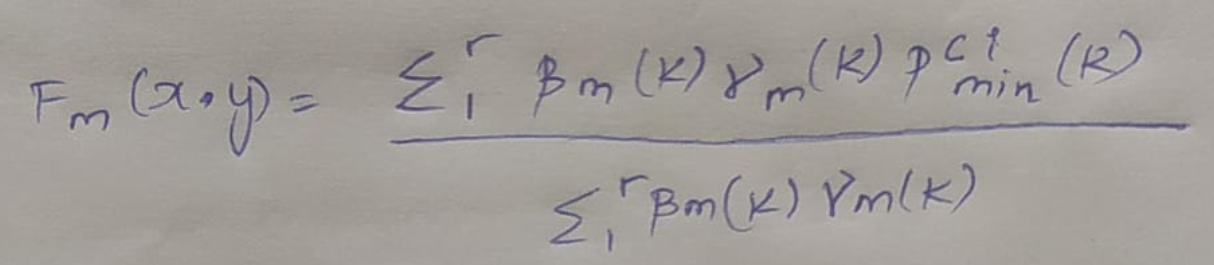 F_m(x,y) = \frac{\sum_1^r \beta_m(K) \gamma_m(K) p^{ci}_{min}(R)}{\sum_1^r \beta_m(K) \gamma_m(K)}